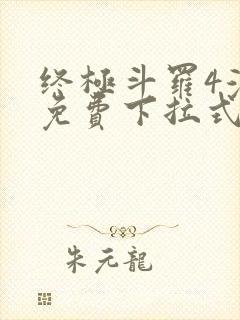 终極斗羅4
免費下拉式
朱元龍